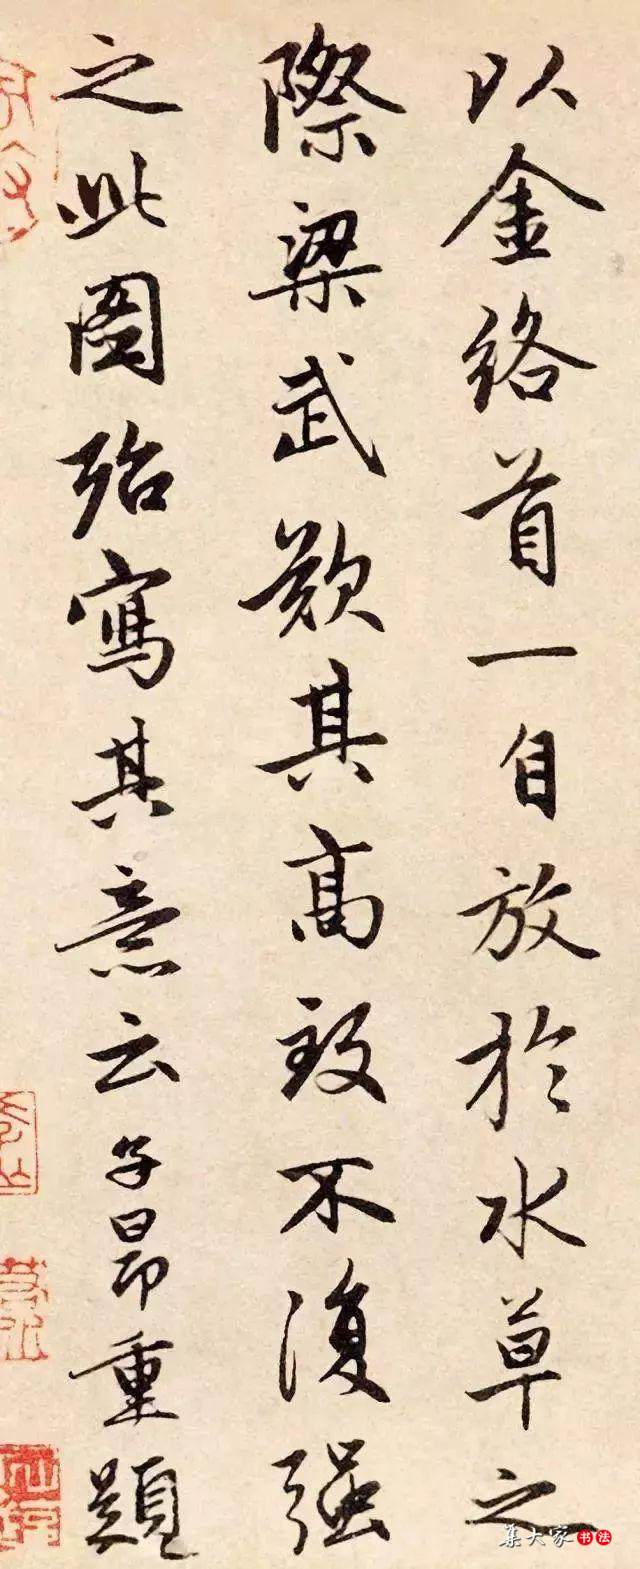 以金络首一自放於水草之
際梁武歎其高致不復强
之此圖殆寫其意云子昂重題
集大家书法